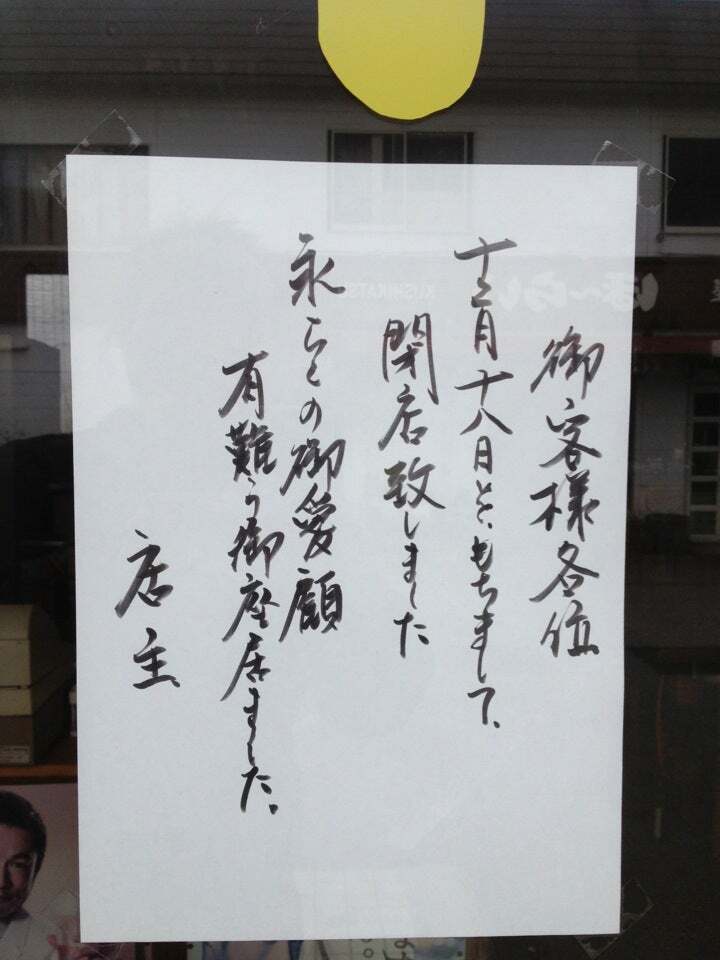 御客様各位
十二月十八日を、もちまして、
閉店致しました
永らくの御愛顧
有難う御座居ました。
店主